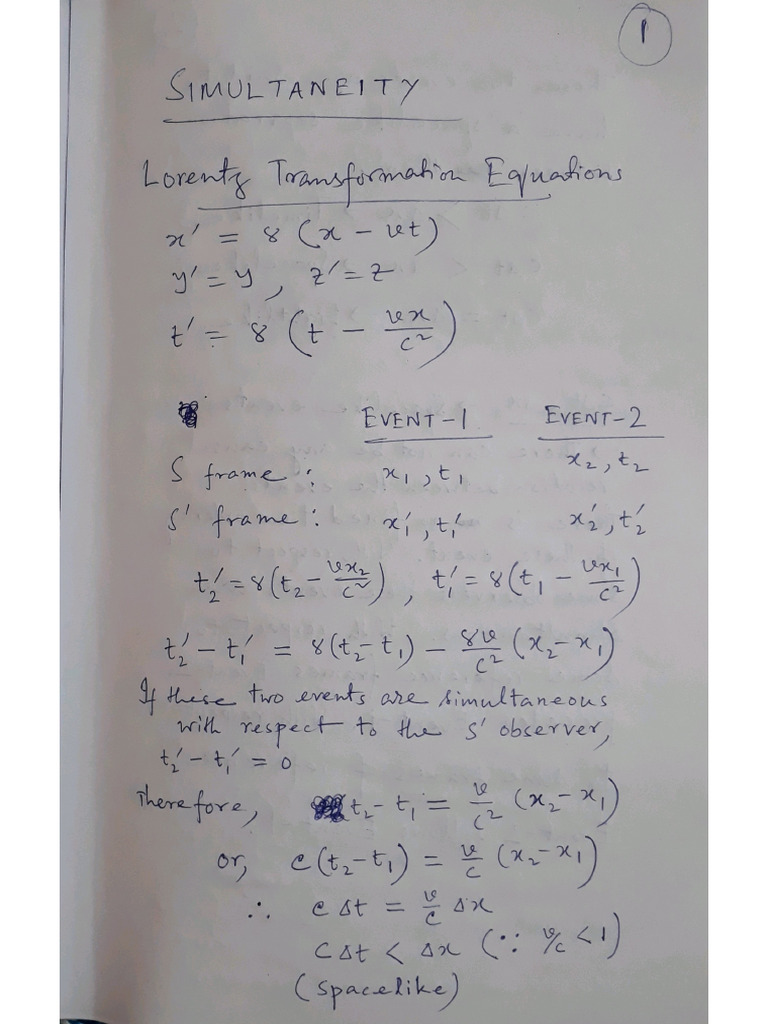 1
SIMULTANEITY
Lorentz Transformation Equations
x' = γ (x - vt)
y' = y, z' = z
t' = γ (t - vx/c²)
EVENT-1 EVENT-2
S frame: x₁, t₁ x₂, t₂
S' frame: x₁', t₁' x₂', t₂'
t₂' = γ(t₂ - vx₂/c²), t₁' = γ(t₁ - vx₁/c²)
t₂' - t₁' = γ(t₂ - t₁) - γv/c² (x₂ - x₁)
If these two events are simultaneous
with respect to the S' observer,
t₂' - t₁' = 0
Therefore, t₂ - t₁ = v/c² (x₂ - x₁)
or, c(t₂ - t₁) = v/c (x₂ - x₁)
∴ cΔt = v/c Δx
cΔt < Δx (∵ v/c < 1)
(spacelike)